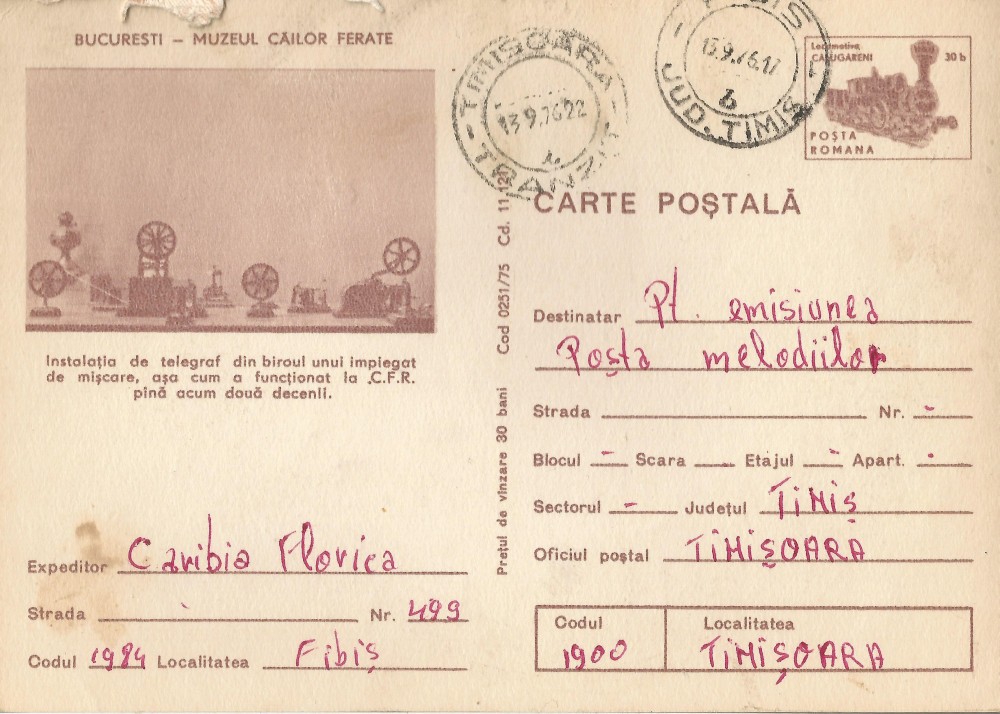 BUCURESTI – MUZEUL CĂILOR FERATE
Instalația de telegraf din biroul unui impiegat
de mișcare, așa cum a funcționat la C.F.R.
pină acum două decenii.
Expeditor Caribia Florica
Strada Nr. 499
Codul 1984 Localitatea Fibiș
- TIMISOARA -
13.9.76.22
TRANZIT
13.9.76.17
b
JUD. TIMIȘ
Locomotiva
CĂLUGARENI 30 b
POȘTA
ROMANA
CARTE POȘTALĂ
Prețul de vînzare 30 bani Cod 0251/75 Cd. 11.121
Destinatar Pt. emisiunea
Poșta melodiilor
Strada Nr. -
Blocul - Scara Etajul - Apart. -
Sectorul - Județul TIMIȘ
Oficiul poștal TIMIȘOARA
Codul Localitatea
1900 TIMIȘOARA